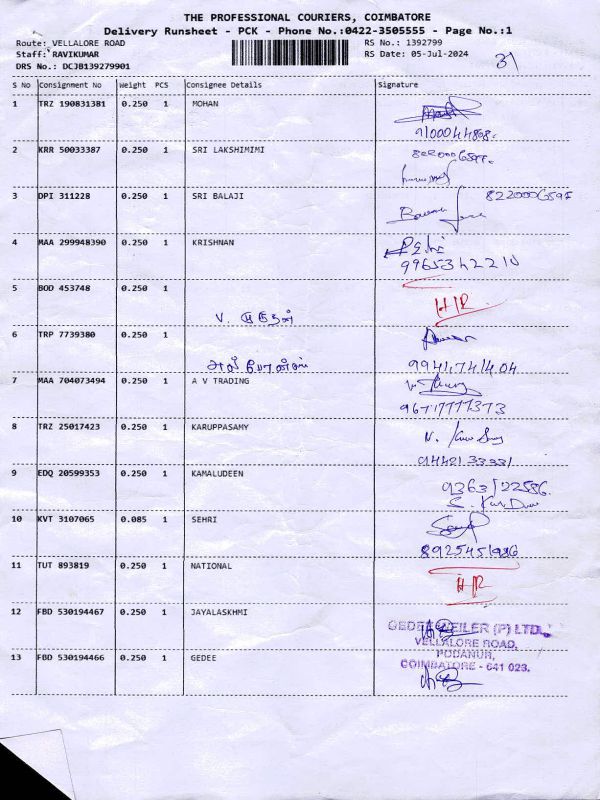 THE PROFESSIONAL COURIERS, COIMBATORE
Delivery Runsheet - PCK - Phone No.:0422-3505555 - Page No.:1
Route: VELLALORE ROAD RS No.: 1392799
Staff: RAVIKUMAR RS Date: 05-Jul-2024
DRS No.: DCJB139279901
31
S No Consignment No Weight PCS Consignee Details Signature
1 TRZ 190831381 0.250 1 MOHAN
9100044898
2 KRR 50033387 0.250 1 SRI LAKSHIMIMI
3 DPI 311228 0.250 1 SRI BALAJI
4 MAA 299948390 0.250 1 KRISHNAN
9965342210
5 BOD 453748 0.250 1 HR
V. முருகன்
6 TRP 7739380 0.250 1
9941741404
7 MAA 704073494 0.250 1 A V TRADING
8 TRZ 25017423 0.250 1 KARUPPASAMY
9442133331
9 EDQ 20599353 0.250 1 KAMALUDEEN
9363122586
10 KVT 3107065 0.085 1 SEHRI
11 TUT 893819 0.250 1 NATIONAL
HR
12 FBD 530194467 0.250 1 JAYALASKHMI
GEDEE WEILER (P) LTD.,
VELLALORE ROAD,
PODANUR,
13 FBD 530194466 0.250 1 GEDEE
COIMBATORE - 641 023.